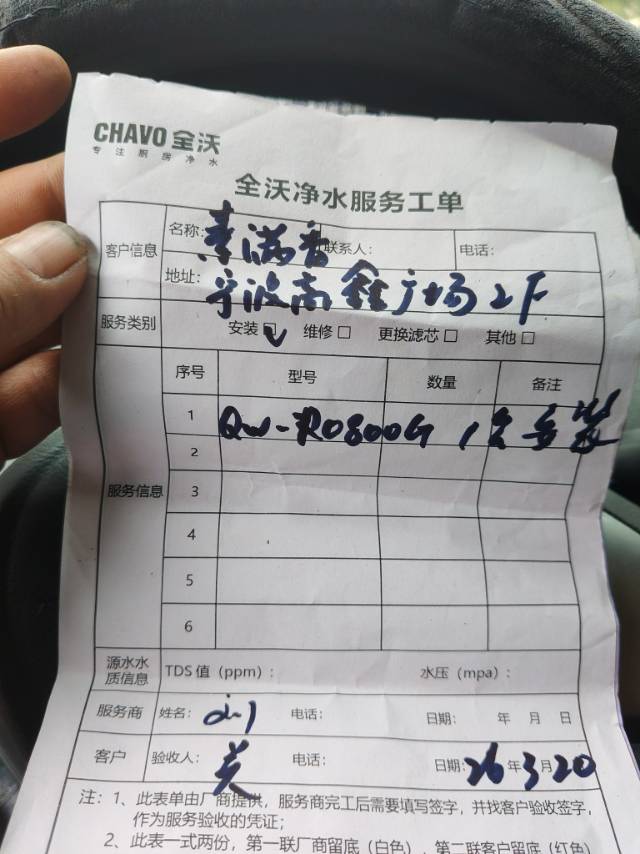 CHAVO 全沃
专注厨房净水
全沃净水服务工单
客户信息
名称: 满香 联系人: 电话:
地址: 宁波高鑫广场2F
服务类别 安装☑ 维修□ 更换滤芯□ 其他□
服务信息
序号 型号 数量 备注
1 QW-RO800G 1台 安装
2
3
4
5
6
源水水质信息 TDS值(ppm): 水压(mpa):
服务商 姓名: 电话: 日期: 年 月 日
客户 验收人: 电话: 日期: 26年3月20
注: 1、此表单由厂商提供,服务商完工后需要填写签字,并找客户验收签字,
作为服务验收的凭证;
2、此表一式两份,第一联厂商留底(白色),第二联客户留底(红色)